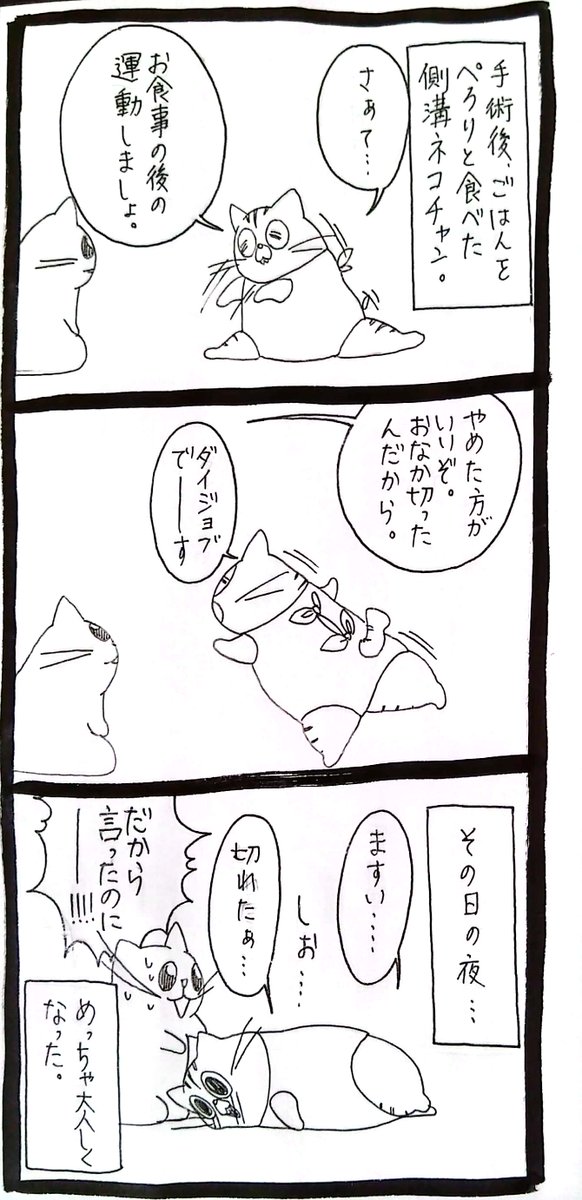 手術後、ごはんを
ぺろりと食べた
側溝ネコチャン。
さぁて…
お食事の後の
運動しましょ。
やめた方が
いいぞ。
おなか切った
んだから。
ダイジョブ
でーーす
その日の夜…
ますい……
しお…
切れたぁ…
だから
言ったのに
ーー!!!!
めっちゃ大人しく
なった。